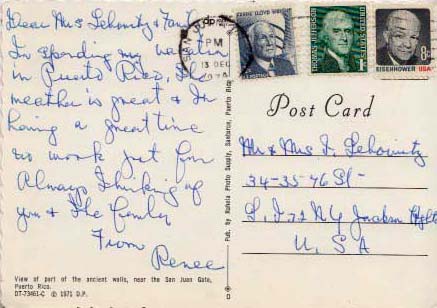 Dear Mrs Lebowitz & Family
Im spending my vacation
in Puerto Rico, The
weather is great & Im
having a great time
no work just fun
Always thinking of
you & the family
From
Renee
View of part of the ancient walls, near the San Juan Gate,
Puerto Rico.
DT-73461-C © 1971 D.P.
Pub. by Rahola Photo Supply, Santurce, Puerto Rico
PM
13 DEC
FRANK LLOYD WRIGHT
THOMAS JEFFERSON
UNITED STATES
1¢
EISENHOWER USA
8¢
Post Card
Mr & Mrs I. Lebowitz
34-35-76 St-
N.Y. Jackson Hghts
U.S.A